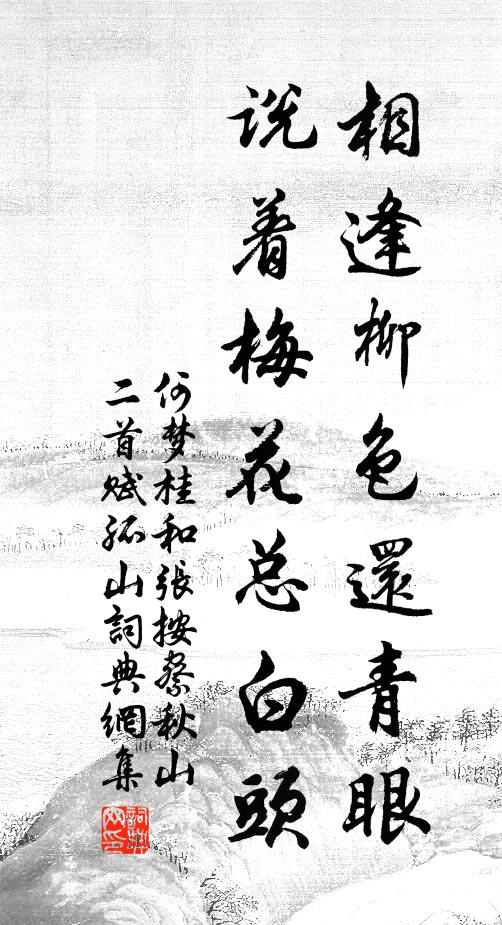 相逢柳色還青眼
説着梅花总白頭
何梦桂和張按察秋山
二首赋孤山詞典網集
詞典网印